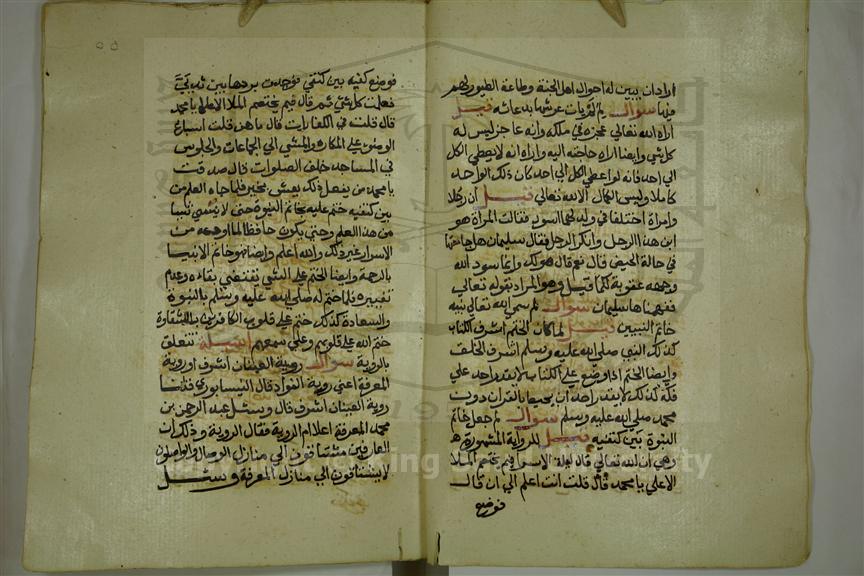 اراد ان يبين له احوال اهل الجنة وطاعة الطيور لهم
فيها سوال لم لقربات عرشها بدعائه قيل
اراه الله تعالى عجزه في ملكه وانه عاجز ليس له
كل شي وايضا اراه حاجته اليه واراه انه لا يعطي الكل
الي احد فانه لو اعطي الكل الي احد كان ذلك الواحد
كاملا وليس الكمال الا لله تعالي قيل ان رجلا
وامراة اختلفا في ولد لهما اسود فقالت المراة هو
ابن هذا الرجل وانكر الرجل فقال سليمان هل جامعتها
في حالة الحيض قال نعم قال هو لك وانما سود الله
وجهه عقوبة لكما قيل وهو المراد بقوله تعالى
ففهمناها سليمان سوال لم سمي الله تعالى نبيه
خاتم النبيين قيل لما كان الختم اشرف الكتاب
كذلك النبي صلي الله عليه وسلم اشرف الخلق
وايضا الختم اذا وضع على الكتاب لا يقدر احد علي
فكه كذلك لا يقدر احد ان يحيط بالقران دون
محمد صلي الله عليه وسلم سوال لم جعل خاتم
النبوة بين كتفيه قيل للرواية المشهورة
وهي ان الله تعالي قال ليلة الاسرا فيم يختصم الملا
الاعلي يا محمد قال قلت انت اعلم الي ان قال
فوضع
فوضع كفيه بين كتفي فوجدت بردها بين ثديي
فعلمت كل شي ثم قال فيم يختصم الملا الاعلا يا محمد
قال قلت في الكفارات قال ما هن قلت اسباغ
الوضوء علي المكاره والمشي الي الجماعات والجلوس
في المساجد خلف الصلوات قال صدقت
يا محمد من يفعل ذلك يعش بخير فلما جاءه العلم من
بين كتفيه ختم عليه بخاتم النبوة حتى لا ينسي شيا
من هذا العلم وحتي يكون حافظا لما اودعه من
الاسرار غير ذلك والله اعلم وايضا هو خاتم الانبيا
بالرحمة وايضا الختم علي الشي يقتضي بقاءه وعدم
تغييره فلما ختم له صلي الله عليه وسلم بالنبوة
والسعادة كذلك ختم علي قلوب الكافرين بالشقاوة
ختم الله علي قلوبهم وعلي سمعهم اسيلة تتعلق
بالروية سوال روية العينان اشرف او روية
المعرفة اعني روية الفواد قال النيسابوري قلنا
روية العينان اشرف قال وسئل عبد الرحمن بن
محمد المعرفة اعلا ام الروية فقال الروية وذكر ان
العارفين مشتاقون الي منازل الوصال والواصلون
لا يشتاقون الي منازل المعرفة وسئل